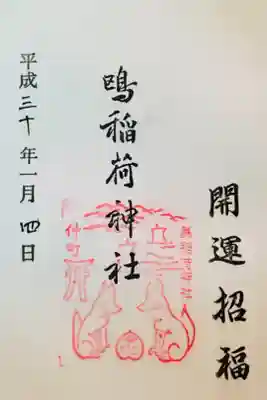 開運招福
鴫稲荷神社
仲町
平成三十年一月四日